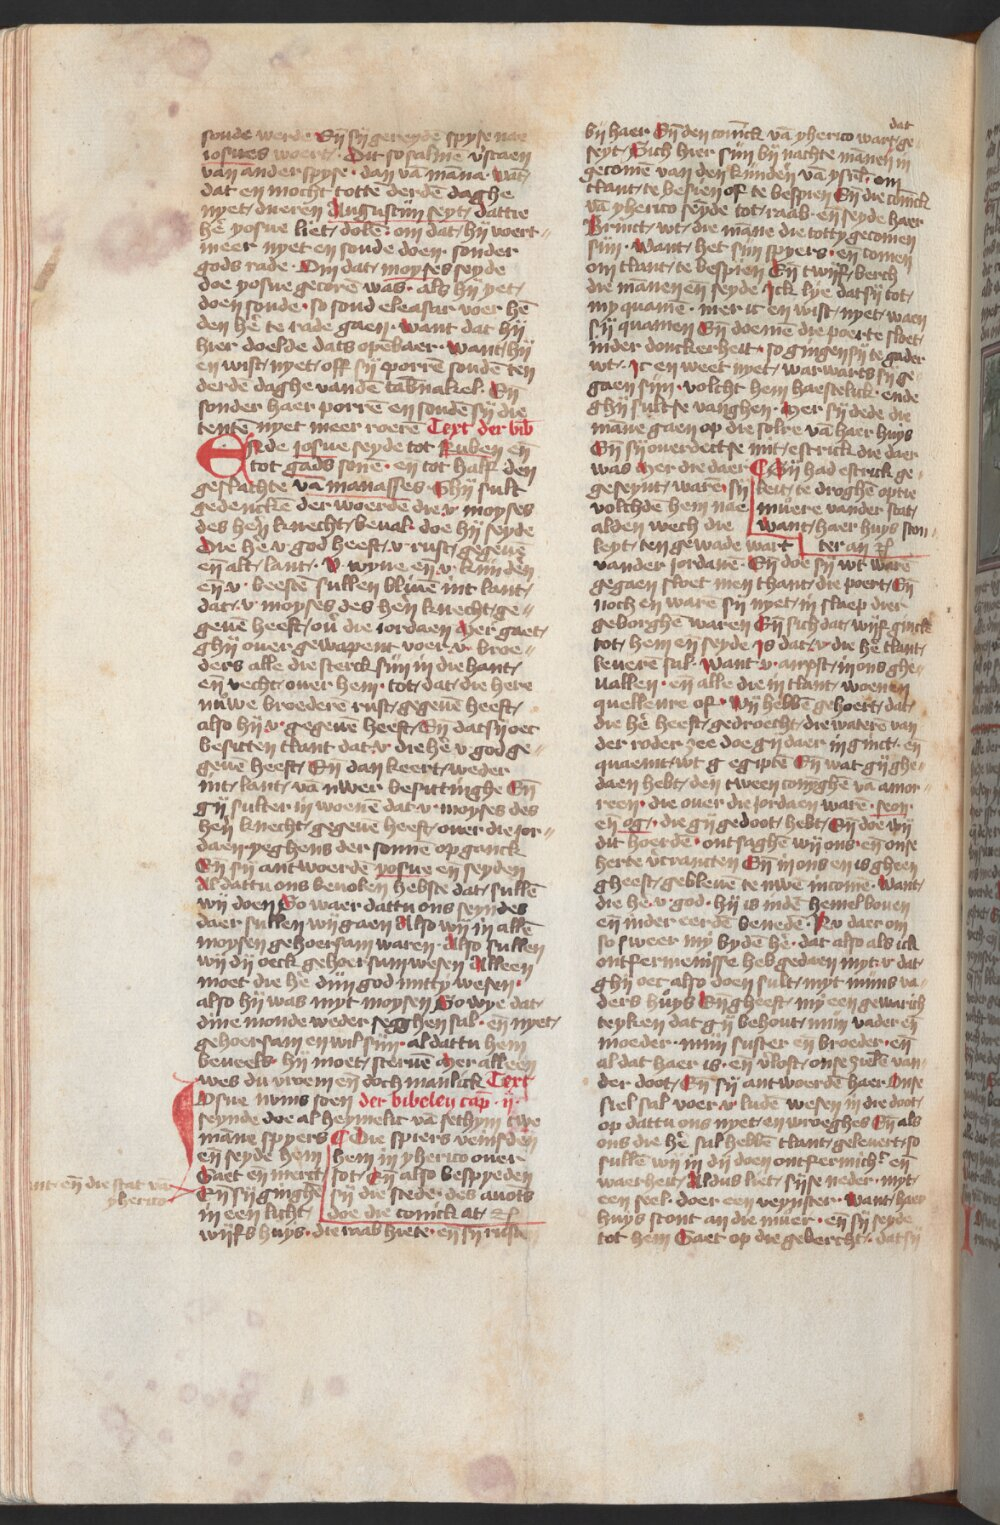 soude werdē. En̄ sij gereydē spyse nae
iosues woert. Dit so salmē v'staen
van ander spyse. dan vā māna. wāt
dat en mocht totte derdē daghe
nyet, dueren Augustijn seyt, dattie
hē yosue liet, dolē. om dat, hij voert
meer nyet en soude doen. sonder
gods rade. Om dat, moyses seyde
doe yosue gecorē was. als hij yet,
doen soude. so soud eleasar voer hē
den hē te rade gaen. want dat hij
hier doelde dats opēbaer. want, hij
en wist, nyet, off sij porrē soudē ten
derdē daghe vandē tab'nakel. En̄
sonder haer porrē en soudē sij die
tentē nyet meer roerē Text der bib
Ende iosue seyde tot Ruben en̄
tot gads sonē. en̄ tot half den
geslachte vā manasses. Ghij sult
gedenckē der woerdē die v moyses
des hen̄ knecht, beual. doe hij seyde
Die hē v god heeft, v rust, gegeuē
en̄ alt, lant. v wyue en̄ v kinden
en̄ v beestē sullen bliuē int lant,
dat, v moyses des hen̄ knecht, ge
geuē heeft, ou' die iordaen Mer gaet,
ghij ouer gewapent voer v broe
ders alle die sterck sijn in die hant,
en̄ vecht, ouer hem. tot, dat, die here
nuwe broederē rust, gegeuē heeft,
also hij v gegeuē heeft, En̄ dat sij oec
besitten tlant dat v die hē v god ge
geuē heeft, En̄ dan keert, weder
int, lant, vā uwer besittinghe En̄
gij sulter in woenē dat v moyses des
hen̄ knecht, gegeuē heeft, ouer die jor
daen, yeghens der sonnē opganck
En̄ sij antwoerdē yosue en̄ seyden
Al dattu ons beuolen hebste dat, sullē
wij doen So waer dattu ons seyndes
daer sullen wij gaen Also wij in allē
moysen gehoersam waren. Also sullen
wij dij oeck gehoersam wesen Alleen
moet die hē dijn god mitty wesen.
also hij was myt moysen So wye dat,
dine monde weder segghen sal. en̄ nyet,
gehoersam en wil sijn. al dattu hem
beueels. hij moet, steruē Mer alleen
wes du vroem en̄ doch manlick Text
Iosue nuns soen der bibelen cap. ij.
seynde doe al heymelic vā sethym twe
māne spyers
en̄ seyde hem
Gaet en̄ merct,
lant en̄ die stat vā
yherico
En̄ sij ginghē
in een licht,
Die spiers veinsden
hem in yherico ouer
sot, En̄ also bespyeden
sij die stede. des auots
doe die conick at, etc
wijfs huys. die raab hiete. en̄ sij rusten
bij haer En̄ den conick vā yherico wart ge
dat
seyt, Sich hier sijn bij nachte mānen in
gecomē van den kindeu vā ysrl'. om
tlant, te besien of te bespien En̄ die conick
vā yherico seyde tot, raab. en̄ seyde haer
Brinct, wt, die māne die totty gecomen
sijn. Want, het sijn spyers. en̄ comen
om tlant, te bespien En̄ twijf, berch
die mānen en̄ seyde Ick lye dat sij tot,
my quamē. mer ic en wist, nyet, waen
sij quamen En̄ doe mē die poerte sloet,
in der donckerheit. so gingen sij te gader
wt. Ic en weet nyet, war warts sij ge
gaen sijn. volcht hem haestelick. ende
ghij sultse vanghen. Mer sij dede die
māne gaen op die solre vā haer huys
En̄ sij ouerdectse mit, estrick die daer
was Mer die daer
geseynt, warē. sij
volchde hem nae
alden wech die
leyt, ten gewade wart
Sij had estrick ge
leit, te droghē optie
muere vander stat,
want, haer huys ston
ter an etc
vander jordanē. En̄ doe sij wt warē
gegaen sloet men thant, die poert, En̄
noch en warē sij nyet, in slaep dier
geborghē waren En̄ sich dat, wijf ginck
tot, hem en̄ seyde Is dat, v die hē tlant,
leuerē sal. want v anxst, in ons ghe
uallen. en̄ alle die in tlant, woenen
quellenre of. Wij hebbē gehoert, dat,
die hē heeft, gedroecht, die waterē van
der roder zee doe gij daer in ginct. en̄
quaemt, wt g egiptē En̄ wat gij ghe
daen hebt, den tween coninghē vā amor
reen. die ouer die jordaen warē. seon.
en̄ og. die gij gedoot, hebt, En̄ doe wij
dit hoerdē. ontsaghē wij ons. en̄ onse
herte v'crancten En̄ in ons en is gheen
gheest, gebleuē te uwē incomē. Want,
die hē v god. hij is indē hemel bouen
en̄ in der eerdē benedē. Nv daer om
so sweer mij bydē hē. dat also als ick
ontfermenisse heb gedaen myt v dat,
ghij oec also doen sult, myt mijns va
ders huys En̄ gheeft, mij een gewarich
teyken dat gij behout, mijn vader en̄
moeder. mijn suster en̄ broeder. en̄
al dat haer is. en̄ v'lost, onse zielē van
der doot, En̄ sij antwoerdē haer Onse
siel sal voer v ludē wesen in die doot,
op dattu ons nyet, en wroeghes En̄ als
ons die hē sal hebbē tlant, geleuert, so
sullē wij in dij doen ontfermich' en̄
waerheit, Aldus liet, sijse neder myt,
een seel. doer een veynster. Want, haer
huys stont an die muer. en̄ sij seyde
tot hem Gaet op die gebercht. dat sij